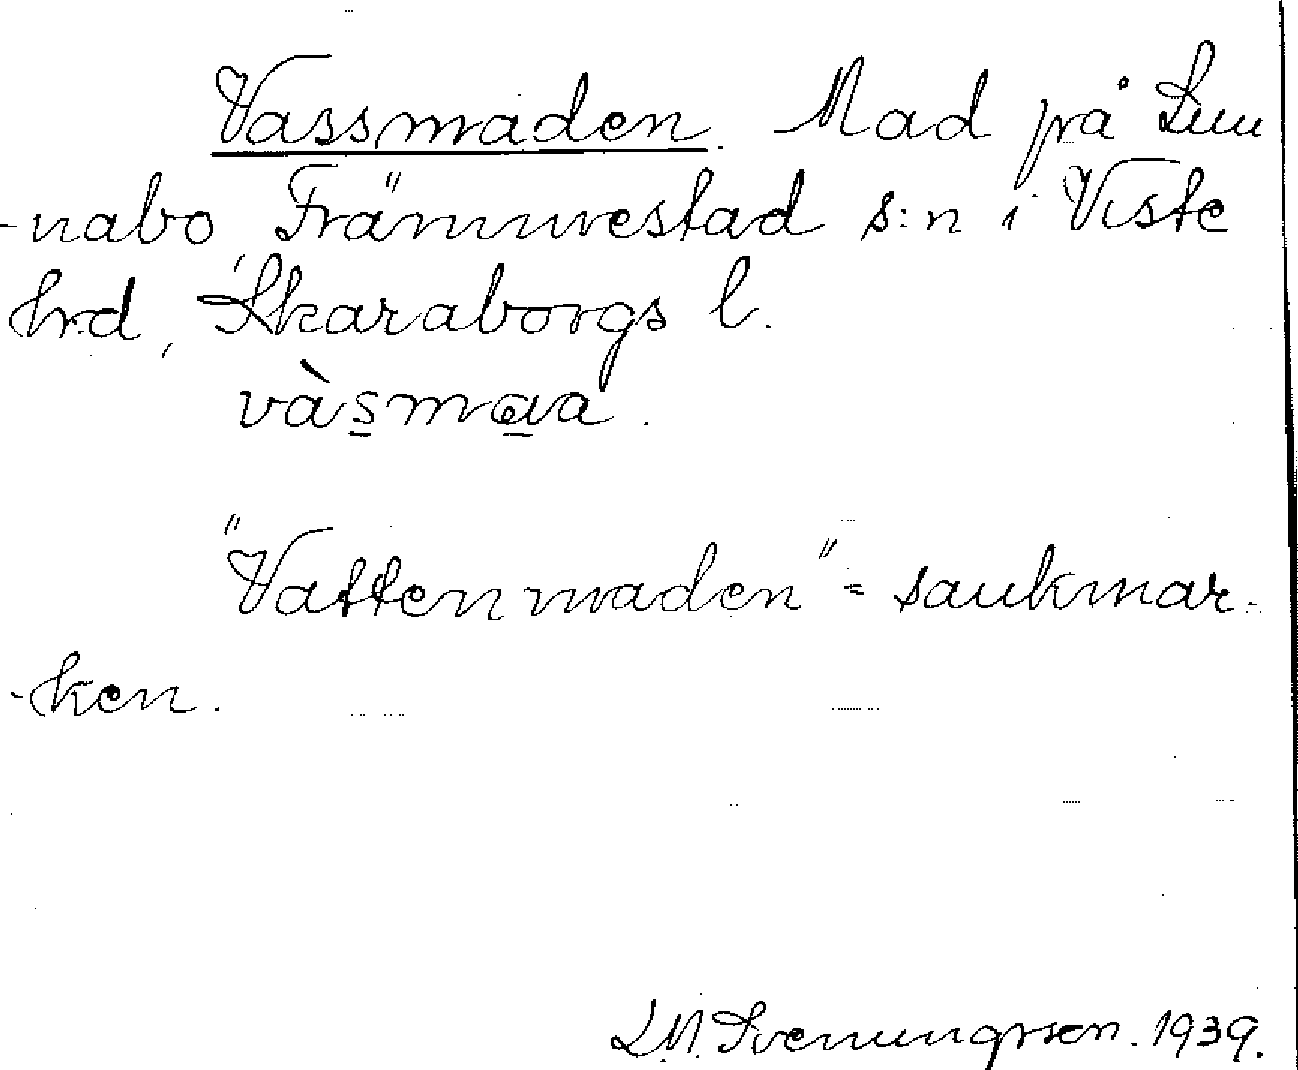 Vassmaden. Mad på Lun
-nabo, Främmestad s:n i Viste
hrd, Skaraborgs l.
vàsmaa.
"Vattenmaden" = sankmar-
-ken.
L.M. Svenungsson. 1939.